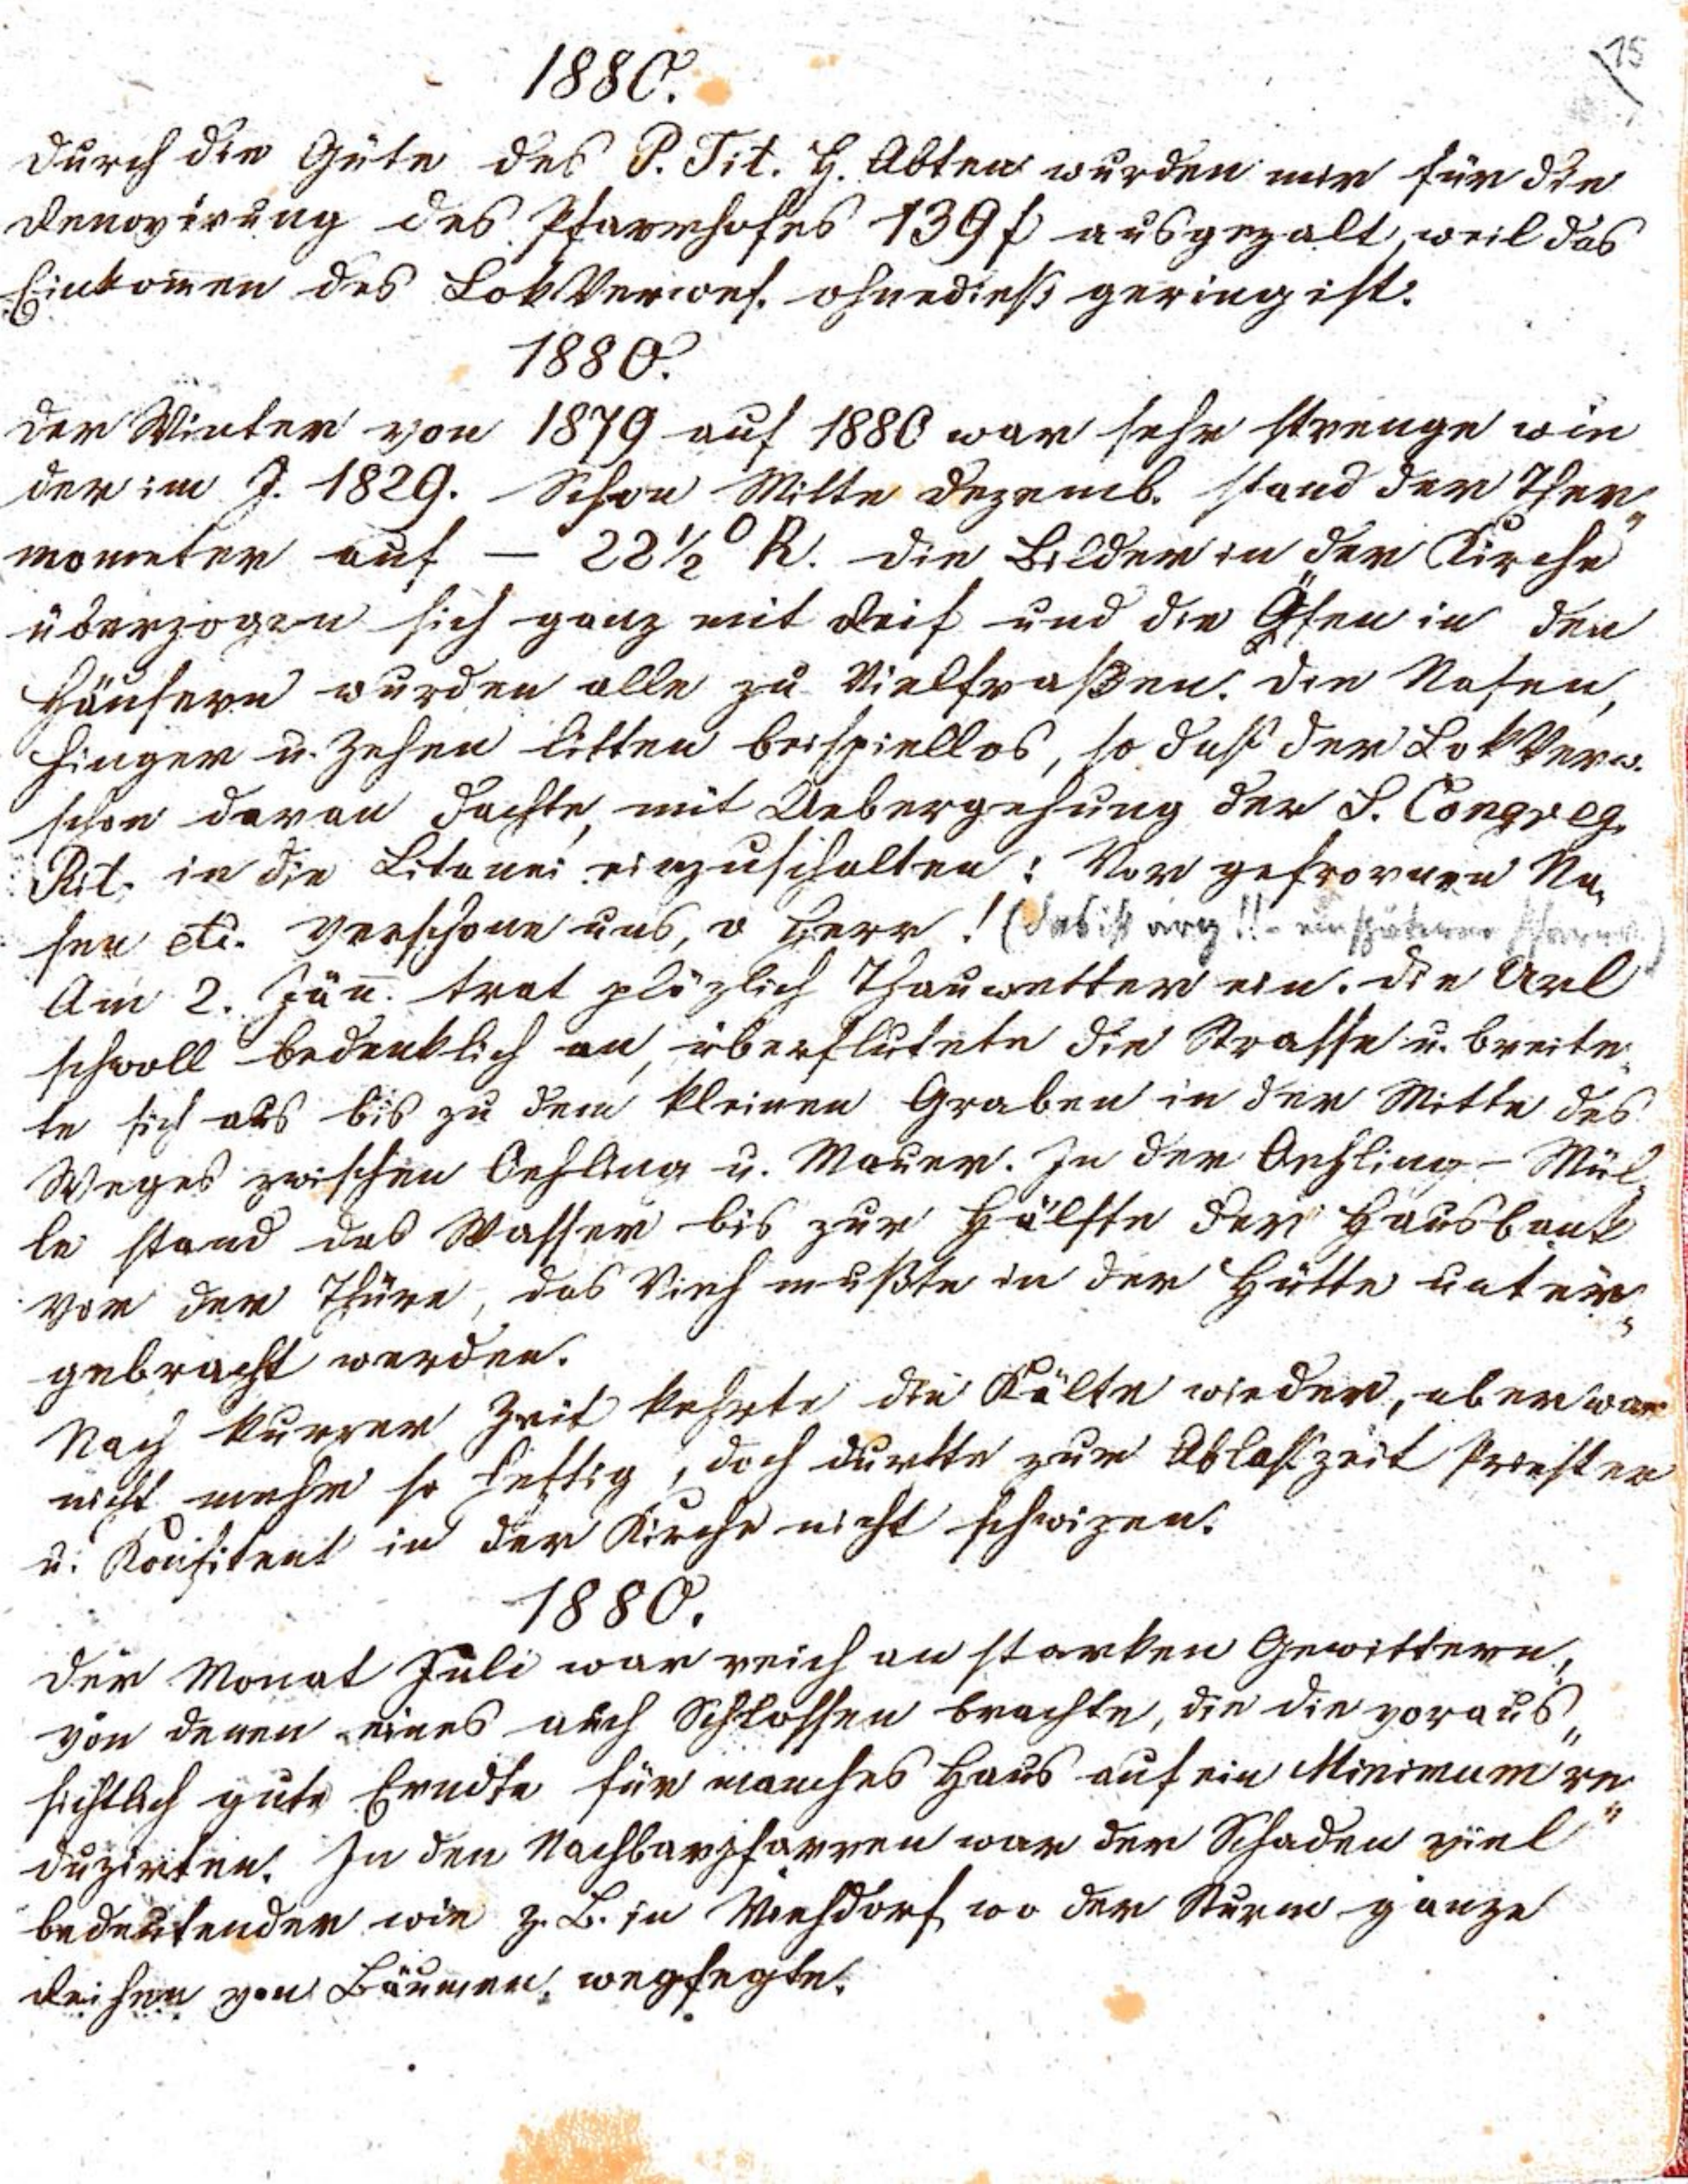 15
1880.
Durch die Güte des P. Tit. H. Abten wurden mir für die
Renovirung des Pfarrhofes 139 f ausgezalt, weil das
Einkom̅en des LokVerwes. ohnedieß gering ist.
1880.
Der Winter von 1879 auf 1880 war sehr strenge wie
der im J. 1829. Schon Mitte Dezemb. stand der Ther„
mometer auf — 22½° R. Die Bilder in der Kirche
überzogen sich ganz mit Reif und die Öfen in den
Häusern wurden alle zu Vielfraßen. Die Nasen,
Finger u. Zehen litten beispiellos, so daß der LokVerw.
schon daran dachte, mit Uebergehung der S. Congreg.
Rit. in die Litanei einzuschalten: Vor gefrornen Na„
sen etc. verschone uns, o Herr! (das ist arg!! - ein späterer Pfarrv.)
Am 2. Jän̅. trat plözlich Thauwetter ein. Die Url
schwoll bedenklich an, überflutete die Strasse u. breite„
te sich aus bis zu dem kleinen Graben in der Mitte des
Weges zwischen Oehling u. Mauer. In der Oehling-Mül„
le stand das Wasser bis zur Hälfte der Hausbank
vor der Thüre, das Vieh mußte in der Hütte unter„
gebracht werden.
Nach kurzer Zeit kehrte die Kälte wieder, aber war
nicht mehr so heftig, doch durfte zur Ablaßzeit Priester
u. Konfitent in der Kirche nicht schwizen.
1880.
Der Monat Juli war reich an starken Gewittern,
von denen eines auch Schlossen brachte, die die voraus„
sichtlich gute Erndte für manches Haus auf ein Minimum re„
duzirten. In den Nachbarpfarren war der Schaden viel
bedeutender wie z. B. in Viehdorf, wo der Sturm ganze
Reihen von Bäumen wegfegte.